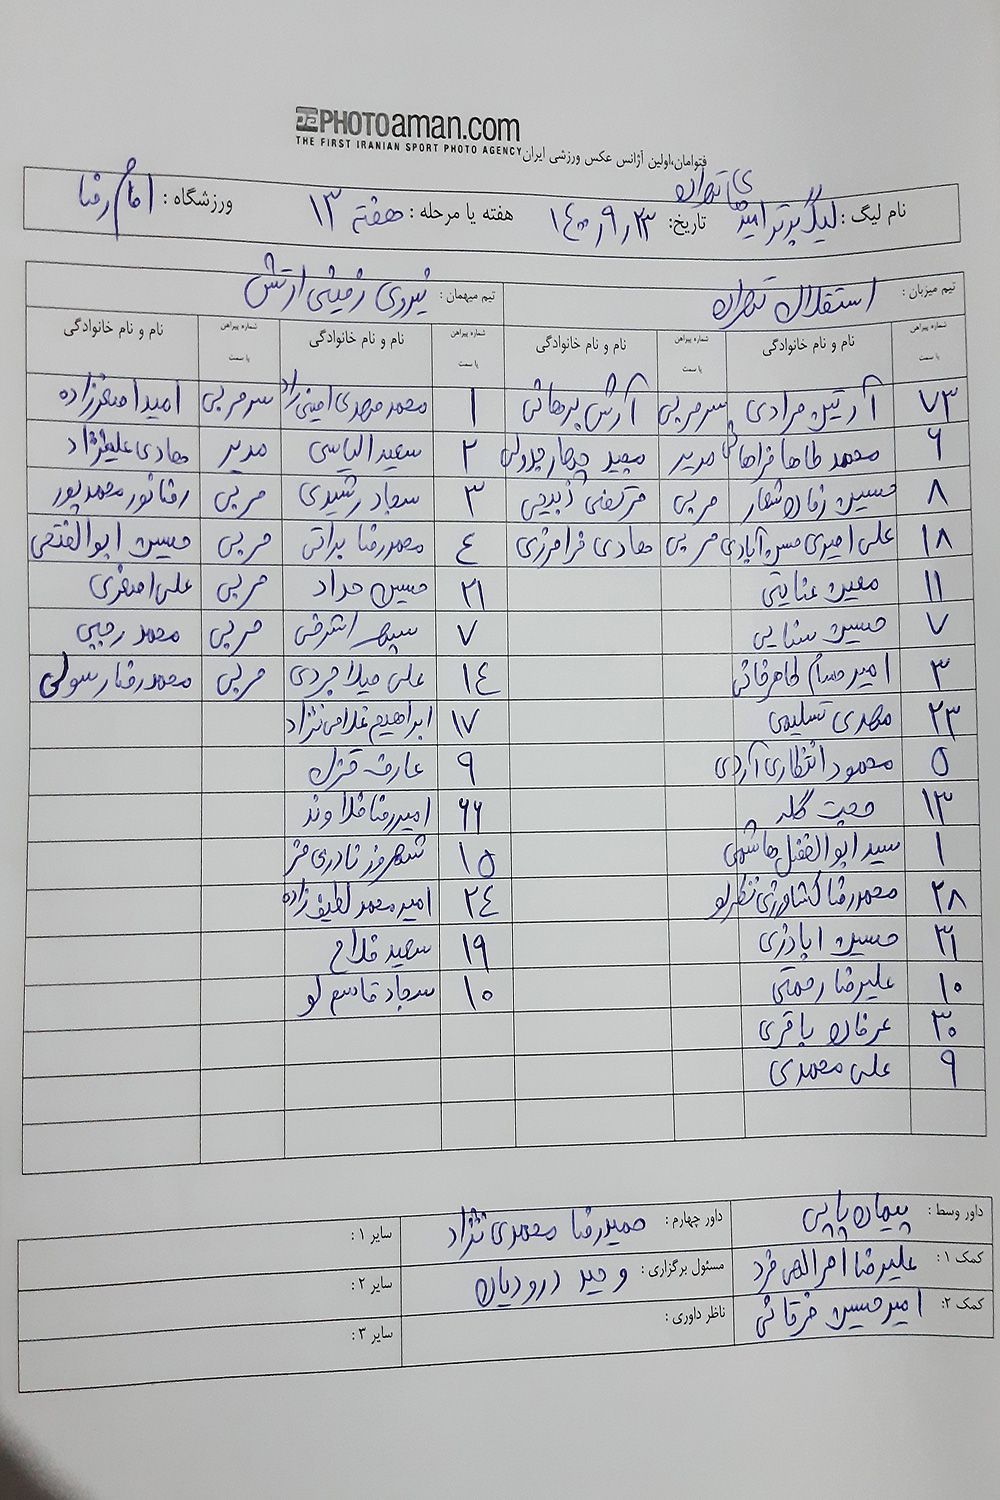 PHOTOaman.com
THE FIRST IRANIAN SPORT PHOTO AGENCY فتوامان،اولین آژانس عکس ورزشی ایران
نام لیگ : لیگ برتر امیدهای تهران تاریخ: ۱۴۰۰٫۹٫۲۳ هفته یا مرحله : هفته ۱۳ ورزشگاه : امام رضا
تیم میزبان : استقلال تهران تیم میهمان : نیروی زمینی ارتش
شماره پیراهن یا سمت نام و نام خانوادگی شماره پیراهن یا سمت نام و نام خانوادگی شماره پیراهن یا سمت نام و نام خانوادگی شماره پیراهن یا سمت نام و نام خانوادگی
۷۳ آرتین مرادی سرمربی آرش برهانی ۱ محمد مهدی امینی زاد سرمربی امید اصغرزاده
۶ محمد طاها فراهانی مدیر مجید چهارچولی ۲ سعید الیاسی مدیر هادی علینژاد
۸ حسین زمان شعار مربی مرتضی ذبیحی ۳ سجاد رشیدی مربی رضا نور محمدپور
۱۸ علی امیری حسن آبادی مربی هادی فرامرزی ۴ محمدرضا براتی مربی حسین ابوالفتحی
۱۱ معین عنایتی ۲۱ حسین حداد مربی علی اصغری
۷ حسین سنایی ۷ سپهر اشرفی مربی محمد رجبی
۳ امیرحسام طاهرخانی ۱۴ علی میلاجردی مربی محمدرضا رسولی
۲۳ مهدی تسلیمی ۱۷ ابراهیم غلامی نژاد
۵ محمود انتظاری آرندی ۹ عارف قزل
۱۳ حجت گله ۶۶ امیررضا قلاوند
۱ سید ابوالفضل هاشمی ۱۵ شهروز نادری فر
۲۸ محمدرضا کشاورزی نظرلو ۲۴ امیرمحمد لطیف زاده
۲۱ حسین اباذری ۱۹ سعید فلاح
۱۰ علیرضا رحمتی ۱۰ سجاد قاسم لو
۳۰ عرفان باقری
۹ علی محمدی
داور وسط : پیمان پاپی داور چهارم : حمیدرضا محمدی نژاد سایر ۱ :
کمک ۱ : علیرضا امراللهی فرد مسئول برگزاری : وحید درودیان سایر ۲ :
کمک ۲: امیرحسین خرقانی ناظر داوری : سایر ۳ :